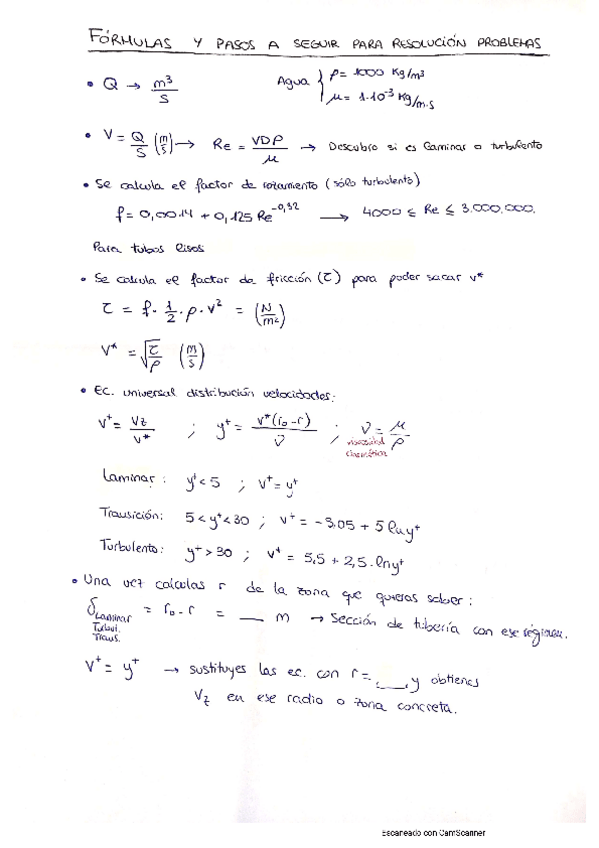 FÓRMULAS Y PASOS A SEGUIR PARA RESOLUCIÓN PROBLEMAS
• Q → m³/s Agua { ρ = 1000 Kg/m³
μ = 1·10⁻³ Kg/m·s
• V = Q/S (m/s) → Re = VDρ/μ → Descubro si es laminar o turbulento
• Se calcula el factor de rozamiento (sólo turbulento)
f = 0,0014 + 0,125 Re^-0,32 → 4000 ≤ Re ≤ 3.000.000.
Para tubos lisos
• Se calcula el factor da fricción (τ) para poder sacar v*
τ = f · 1/2 · ρ · v² = (N/m²)
v* = √(τ/ρ) (m/s)
• Ec. universal distribución velocidades:
v⁺ = Vz/v* ; y⁺ = v*(r₀-r)/ν ; ν = μ/ρ
viscosidad
cinemática
Laminar: y⁺ < 5 ; v⁺ = y⁺
Transición: 5 < y⁺ < 30 ; v⁺ = -3,05 + 5 ln y⁺
Turbulento: y⁺ > 30 ; v⁺ = 5,5 + 2,5 · ln y⁺
• Una vez calculas r de la zona que quieras saber:
δ Laminar = r₀ - r = __ m → Sección de tubería con ese régimen.
Turbul.
Trans.
v⁺ = y⁺ → sustituyes las ec. con r = __, y obtienes
Vz en ese radio o zona concreta.
Escaneado con CamScanner